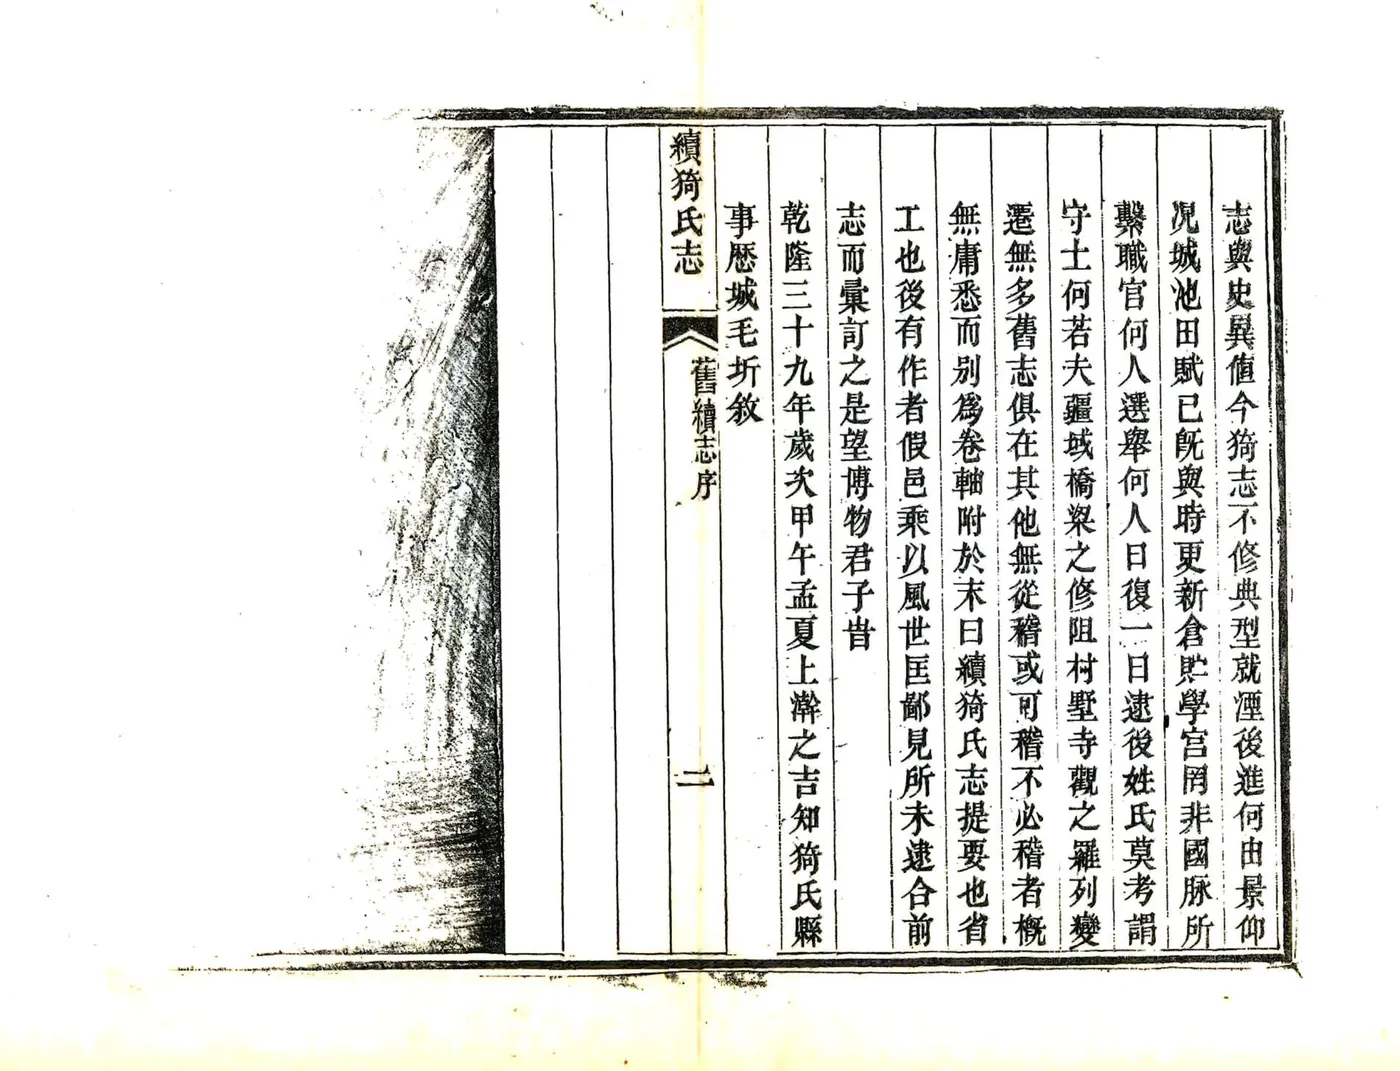 志與史異值今猗志不修典型就湮後進何由景仰
况城池田賦已旣與時更新倉貯學宮罔非國脉所
繫職官何人選舉何人日復一日逮後姓氏莫考謂
守土何若夫疆域橋梁之修阻村墅寺觀之羅列變
遷無多舊志俱在其他無從稽或可稽不必稽者槪
無庸悉而别爲卷軸附於末曰續猗氏志提要也省
工也後有作者假邑乘以風世匡鄙見所未逮合前
志而彙訂之是望博物君子旹
乾隆三十九年歲次甲午孟夏上澣之吉知猗氏縣
事歷城毛圻敘
續猗氏志
舊續志序
二